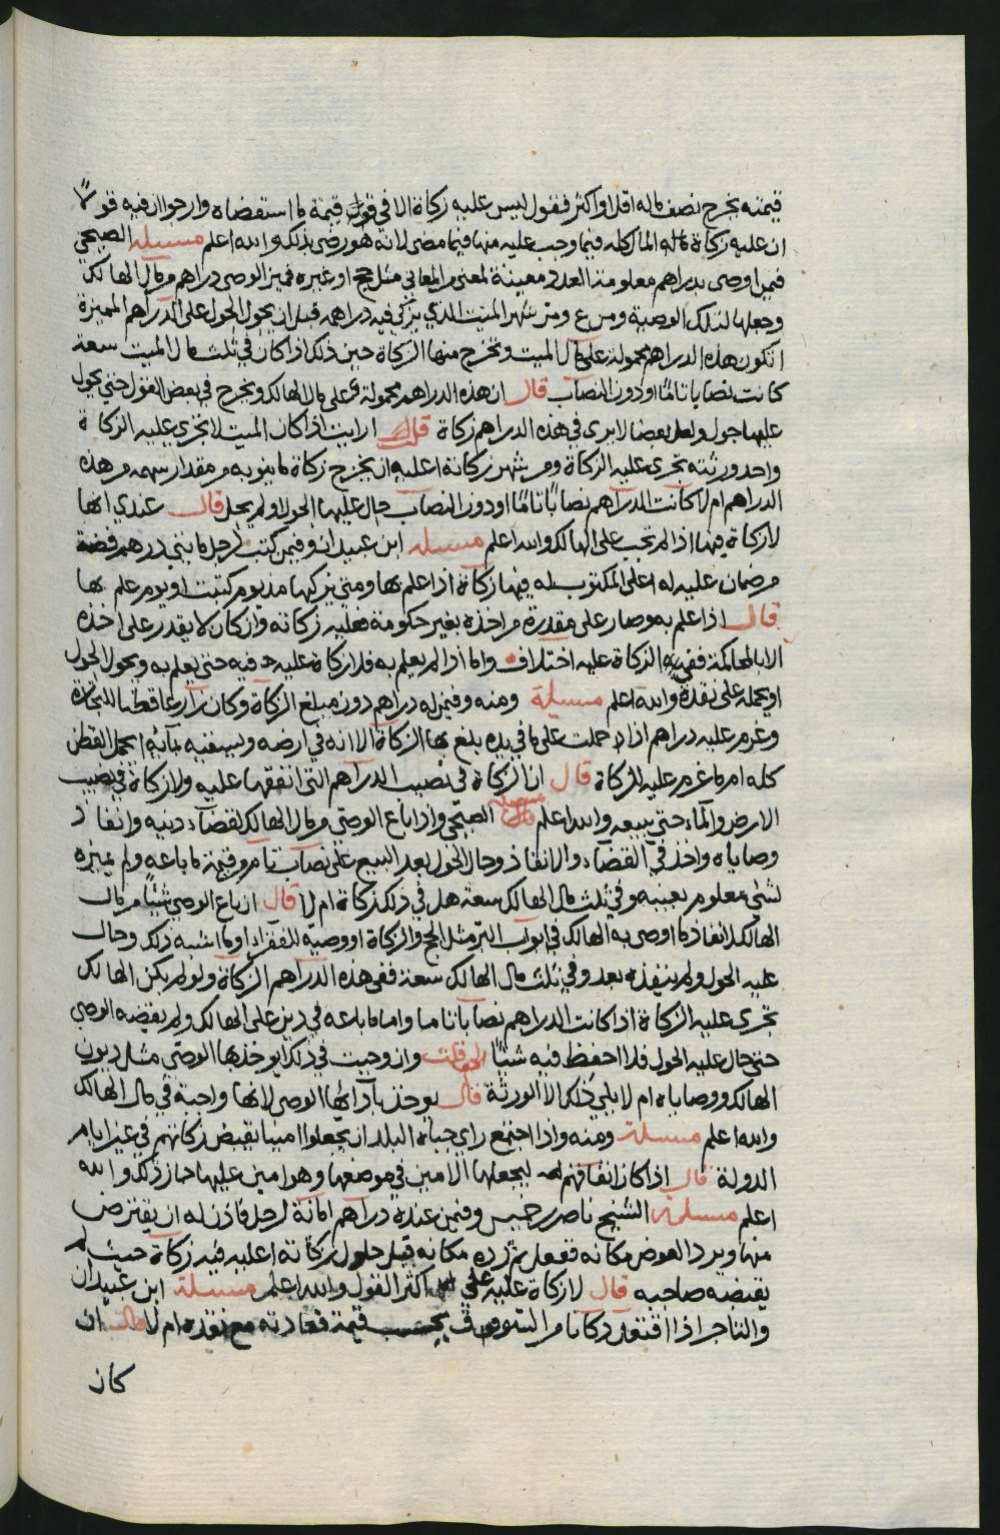 قيمته يخرج نصف ماله اقل او اكثر فقول ليس عليه زكاة الا في قول قيمة ما استقضاه وارجوا ان فيه قولا
ان عليه زكاة ماله المال كله فيما وجب عليه منها فيما مضى لانه هو رضي بذلك والله اعلم مسيلة الصبحي
فيمن اوصى بدراهم معلومة العدد معينة لمعنى من المعاني مثل حج او غيره فميز الوصي دراهم من مال الهالك
وجعلها لتلك الوصية ومن ع ومتى شهر الميت الذي يزكي فيه دراهمه قبل ان يحول الحول على الدراهم المميزة
اتكون هذه الدراهم محمولة على مال الميت وتخرج منها الزكاة حين ذلك اذا كان في ثلث مال الميت سعة
كانت نصابا تاما او دون النصاب قال ان هذه الدراهم محمولة على مال الهالك ويخرج في بعض القول حتى يحول
عليها حول ولعل بعضا لا يرى في هذه الدراهم زكاة قلت ارايت اذا كان الميت لا تجري عليه الزكاة
واحد ورثته تجري عليه الزكاة ومر شهر زكاته اعليه ان يخرج زكاة ما ينوبه من مقدار سهمه من هذه
الدراهم ام لا كانت الدراهم نصابا تاما او دون النصاب حال عليها الحول او لم يحل قال عندي انها
لا زكاة فيها اذا لم تجب على الهالك والله اعلم مسيلة ابن عبيدان وفيمن كتب لرجل مايتي درهم فضة
من ضمان عليه له اعلى المكتوب له فيها زكاة اذا علم بها ومتى يزكيها مذ يوم كتبت او يوم علم بها
قال اذا علم به وصار على مقدرة من اخذه بغير حكومة فعليه زكاته وان كان لا يقدر على اخذه
الا بالمحاكمة ففي الزكاة عليه اختلاف واما اذا لم يعلم به فلا زكاة عليه فيه حتى يعلم به ويحول الحول
او يحمله على نقده والله اعلم مسيلة ومنه وفيمن له دراهم دون مبلغ الزكاة وكان زارعا قطنا للتجارة
وغرم عليه دراهم اذا حملت على ما في يده بلغ بها الزكاة الا انه في ارضه ويسقيه بمائه ايحمل القطن
كله ام ما غرم عليه للزكاة قال ان الزكاة في نصيب الدراهم التي انفقها عليه ولا زكاة في نصيب
الارض والماء حتى يبيعه والله اعلم مسيلة الصبحي واذا باع الوصي من مال الهالك لقضاء دينه وانفاذ
وصاياه واخذ في القضاء والانفاذ وحال الحول بعد البيع على نصاب تام من قيمة ما باعه ولم يميزه
لشيء معلوم بعينه وفي ثلث مال الهالك سعة هل في ذلك زكاة ام لا قال ان باع الوصي شيئا من مال
الهالك لانفاذ ما اوصى به الهالك في ابواب البر مثل الحج والزكاة او وصية للفقراء او ما اشبه ذلك وحال
عليه الحول ولم ينفذه بعد وفي ثلث مال الهالك سعة ففي هذه الدراهم الزكاة ولو لم يكن الهالك
تجري عليه الزكاة اذا كانت الدراهم نصابا تاما واما ما باعه في دين على الهالك ولم يقضه الوصي
حتى حال عليه الحول فلا احفظ فيه شيئا قلت وان وجبت في ذلك ايوخذ بها الوصي مثل ديون
الهالك ووصاياه ام لا يلي ذلك الا الورثة قال يوخذ بادائها الوصي لانها واجبة في مال الهالك
والله اعلم مسيلة ومنه واذا اجتمع راي جباه البلد ان يجعلوا امينا يقبض زكاتهم في غير ايام
الدولة قال اذا كان اتفاقهم ليجعلها الامين في موضعها وهو امين عليها جاز ذلك والله
اعلم مسيلة الشيخ ناصر بن خميس وفيمن عنده دراهم امانة لرجل فاذن له ان يقترض
منها ويرد العوض مكانه ففعل ثم رده مكانه قبل حلول زكاته اعليه فيه زكاة حيث لم
يقبضه صاحبه قال لا زكاة عليه على اكثر القول والله اعلم مسيلة ابن عبيدان
والتاجر اذا اقتعد دكانا من السوق قيمة قعادته مع نقده ام لا قال ان
كان